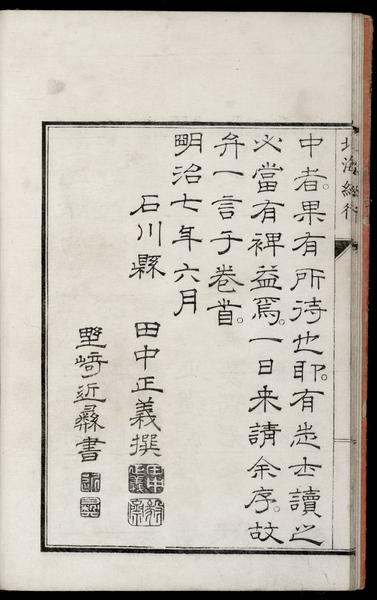 中者。果有所待也耶。有志士讀之
必當有裨益焉。一日来請余序。故
弁一言于卷首。
明治七年六月
石川縣 田中正義撰
野﨑近彝書